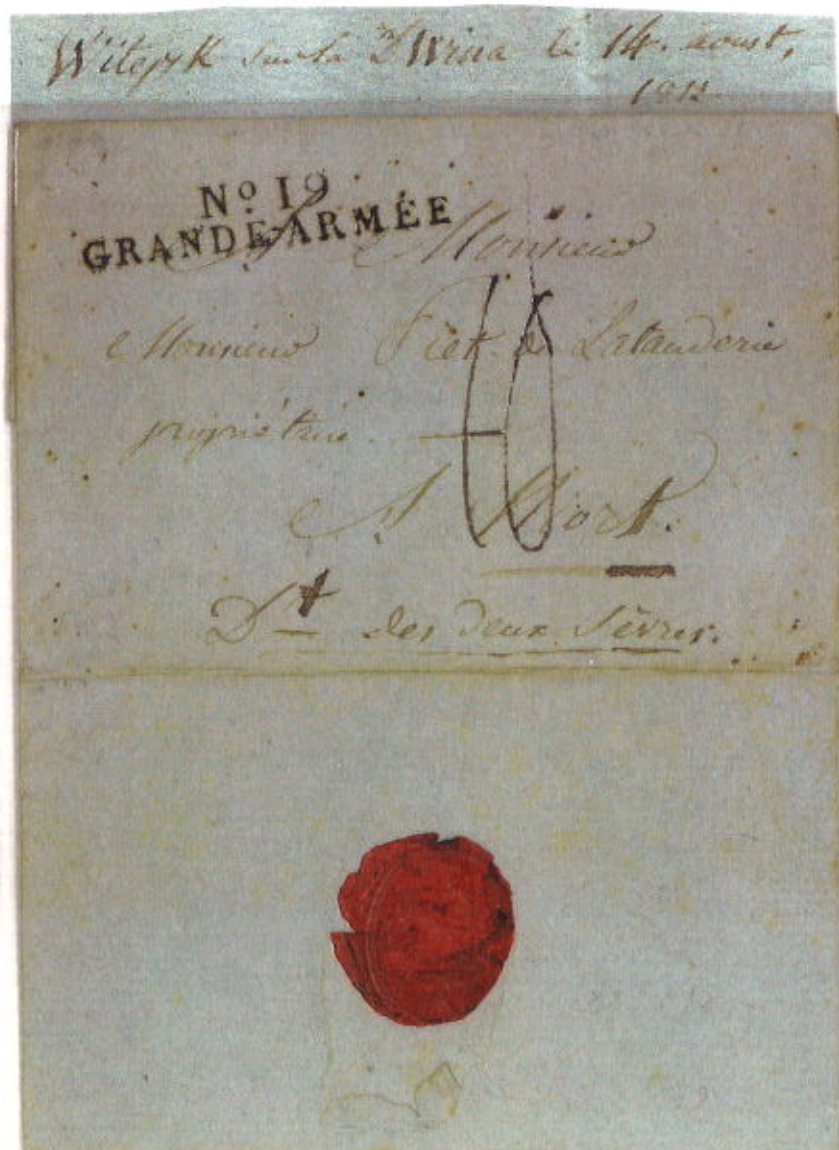 Witepsk sur la Dwina le 14. aoust,
1812
No 19
GRANDE-ARMÉE
A Monsieur
Monsieur de Latauderie
propriétaire
A Niort.
Dt des deux Sèvres.